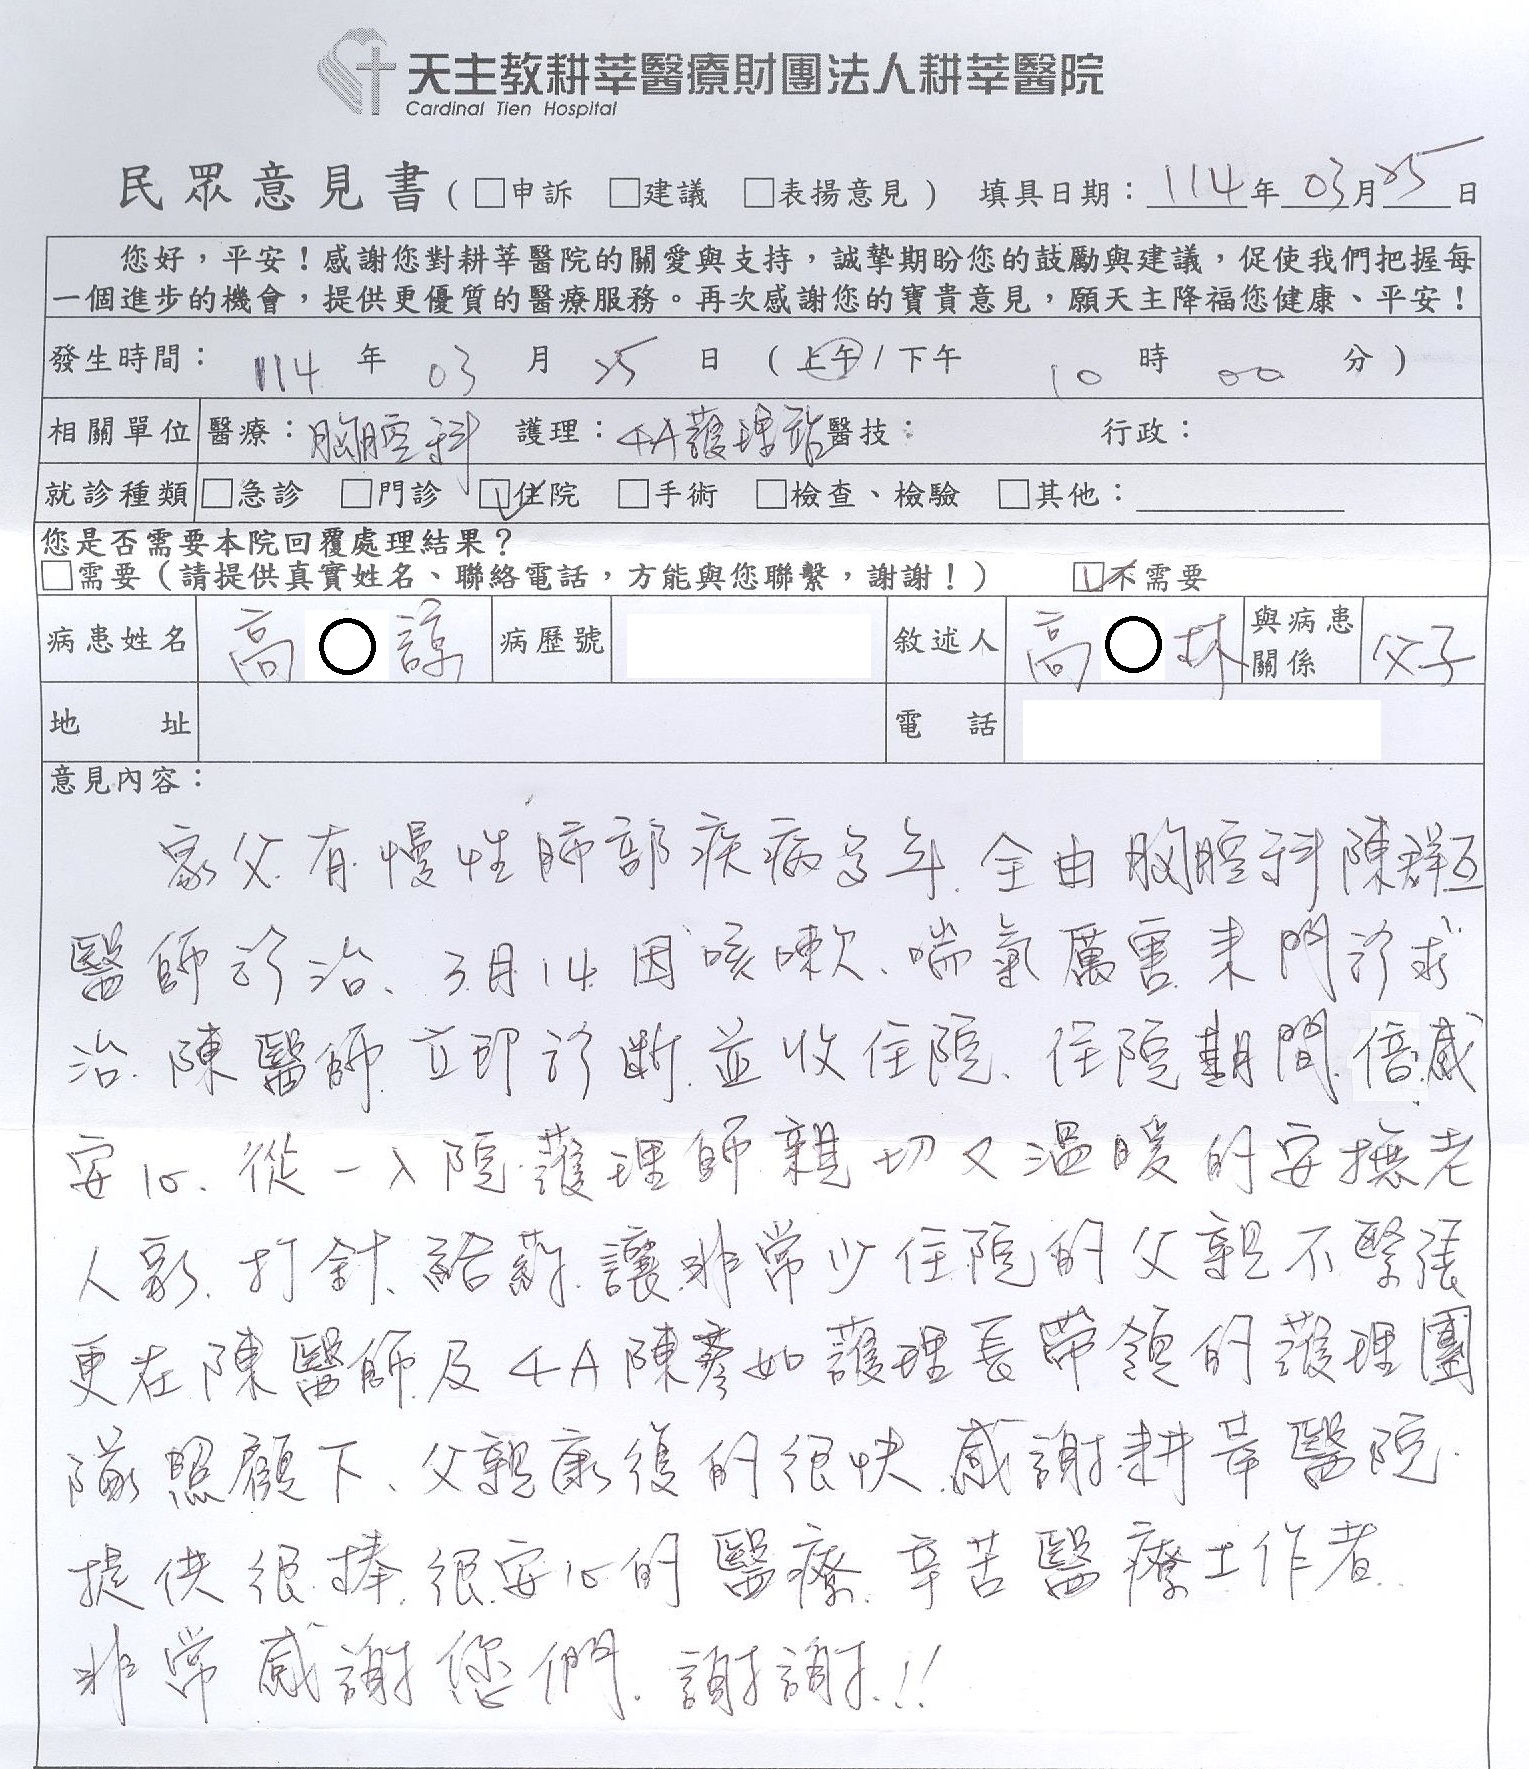 天主教耕莘醫療財團法人耕莘醫院
Cardinal Tien Hospital
民眾意見書(□申訴 □建議 □表揚意見) 填具日期：114年03月25日
您好，平安！感謝您對耕莘醫院的關愛與支持，誠摯期盼您的鼓勵與建議，促使我們把握每
一個進步的機會，提供更優質的醫療服務。再次感謝您的寶貴意見，願天主降福您健康、平安！
發生時間： 114 年 03 月 25 日 (上午/下午 10 時 00 分)
相關單位 醫療：胸腔科 護理：4A護理站 醫技： 行政：
就診種類 □急診 □門診 ☑住院 □手術 □檢查、檢驗 □其他：
您是否需要本院回覆處理結果？
□需要（請提供真實姓名、聯絡電話，方能與您聯繫，謝謝！） ☑不需要
病患姓名 高○諄 病歷號 敘述人 高○林 與病患關係 父子
地址 電話
意見內容：
家父有慢性肺部疾病多年.全由胸腔科陳群互
醫師診治、3月14因咳嗽、喘氣厲害來門診求
治.陳醫師立即診斷.並收住院、住院期間.倍感
安心、從一入院護理師親切又溫暖的安撫老
人家.打針、給藥.讓非常少住院的父親不緊張
更在陳醫師及4A陳彥如護理長帶領的護理團
隊照顧下、父親康復的很快.感謝耕莘醫院.
提供很棒.很安心的醫療.辛苦醫療工作者.
非常感謝您們.謝謝!!